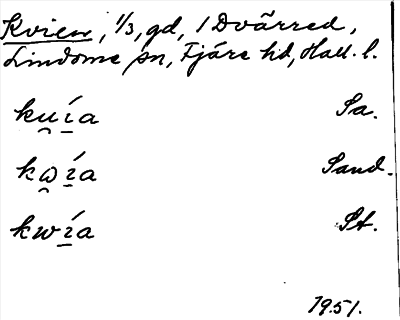 Kvien, 1/3, gd, 1 Dvärred,
Lindome sn, Fjäre hd, Hall. l.
ku̯í̱a Sa.
kω̯í̱a Sand.
kwí̱a St.
1951.